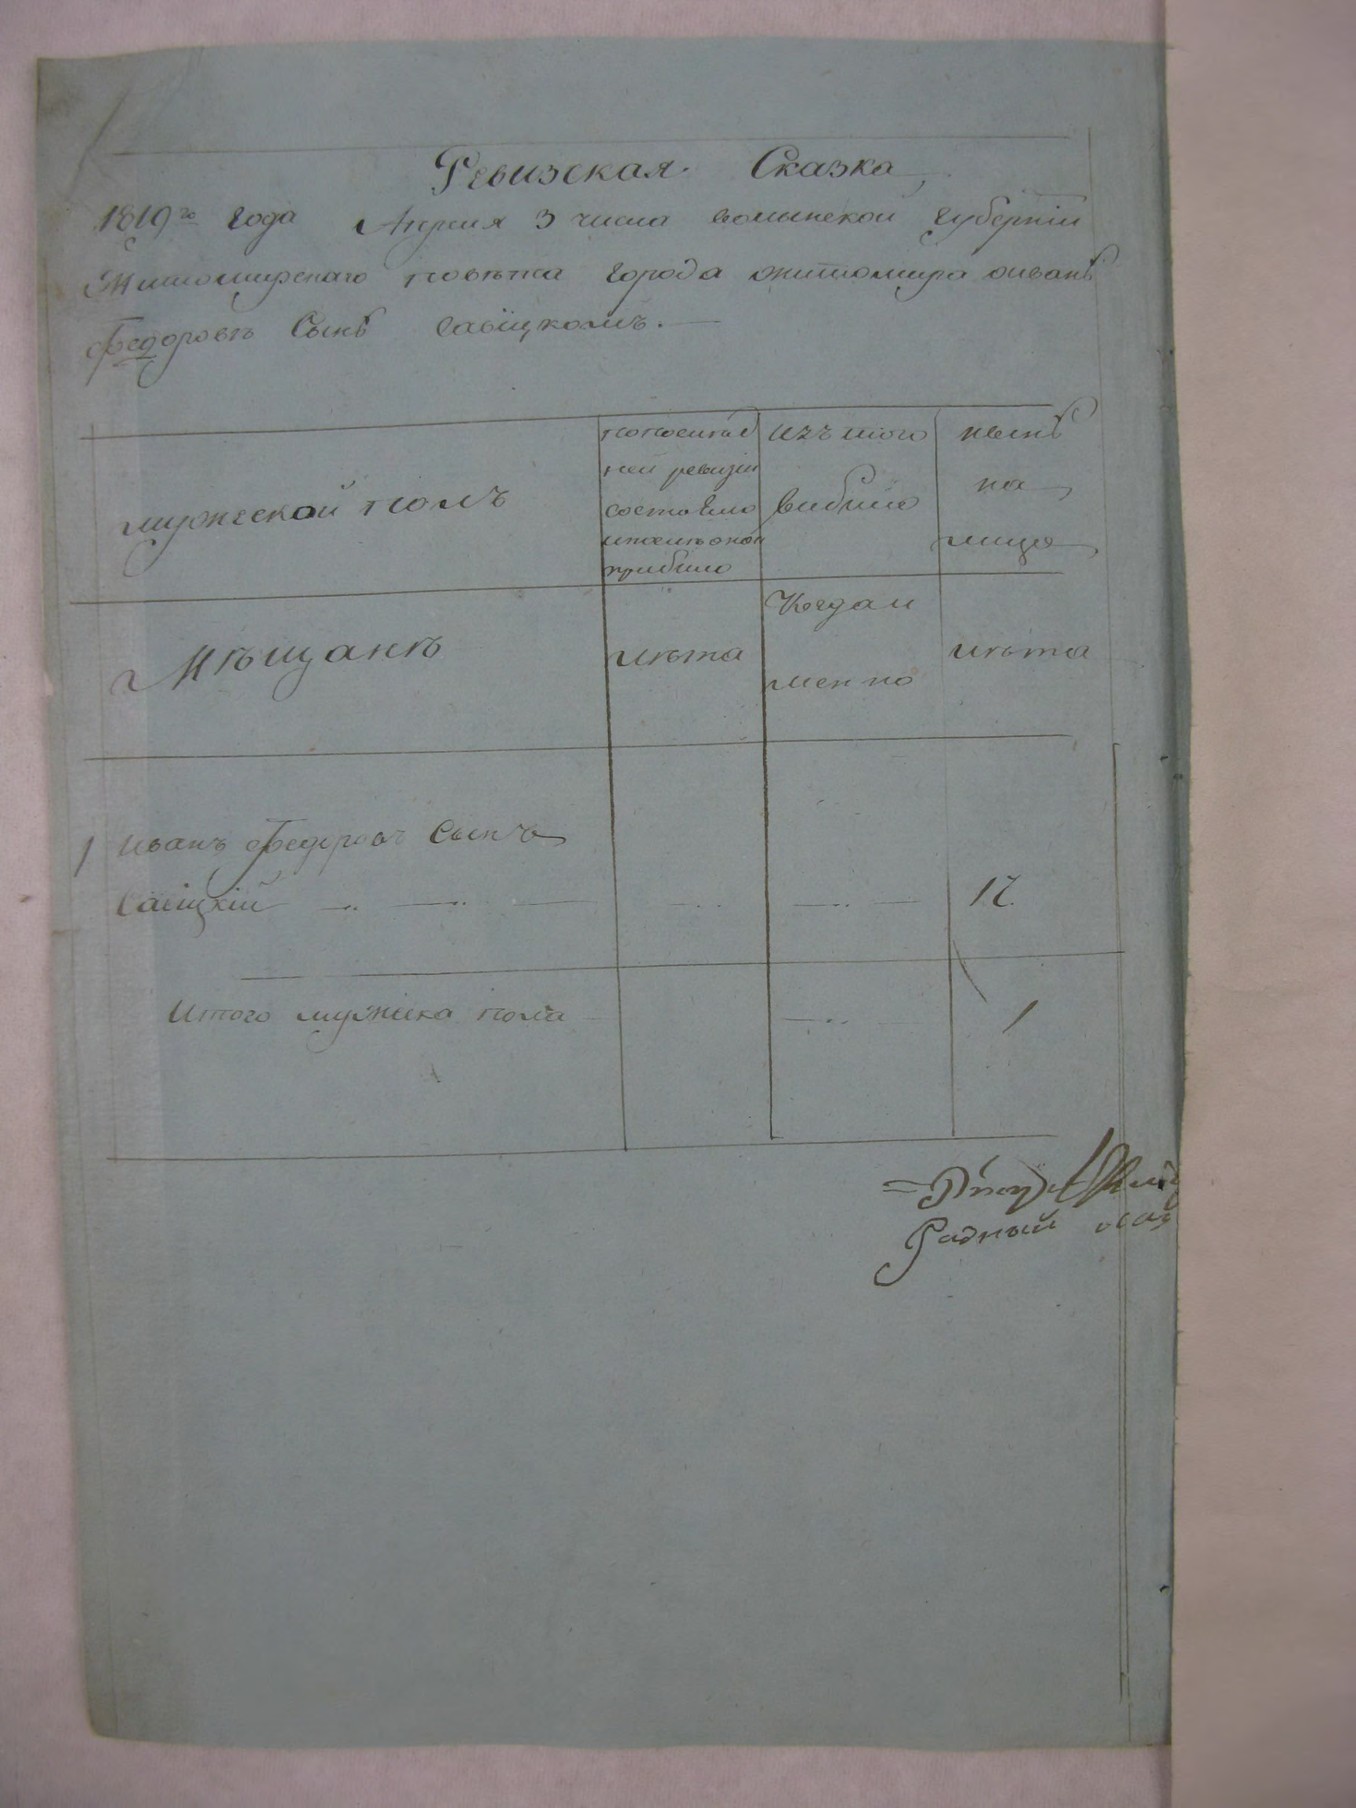 Ревизская Сказка
1819го года Апреля 3 числа волынской губернiи
Житомирскаго повѣта города житомира оиванѣ
Федоровѣ Сынѣ Савiцкомъ.
мужеской полъ
попослѣд
ней ревизiи
состояло
ипослѣоной
прибило
изъ того
вибило
нынѣ
на
лицо
Мѣщанѣ
лѣта
Когда и
менно
лѣта
1 иванъ Федоровъ Сынъ
Савiцкiй 17.
Итого мужеска пола 1
Радный